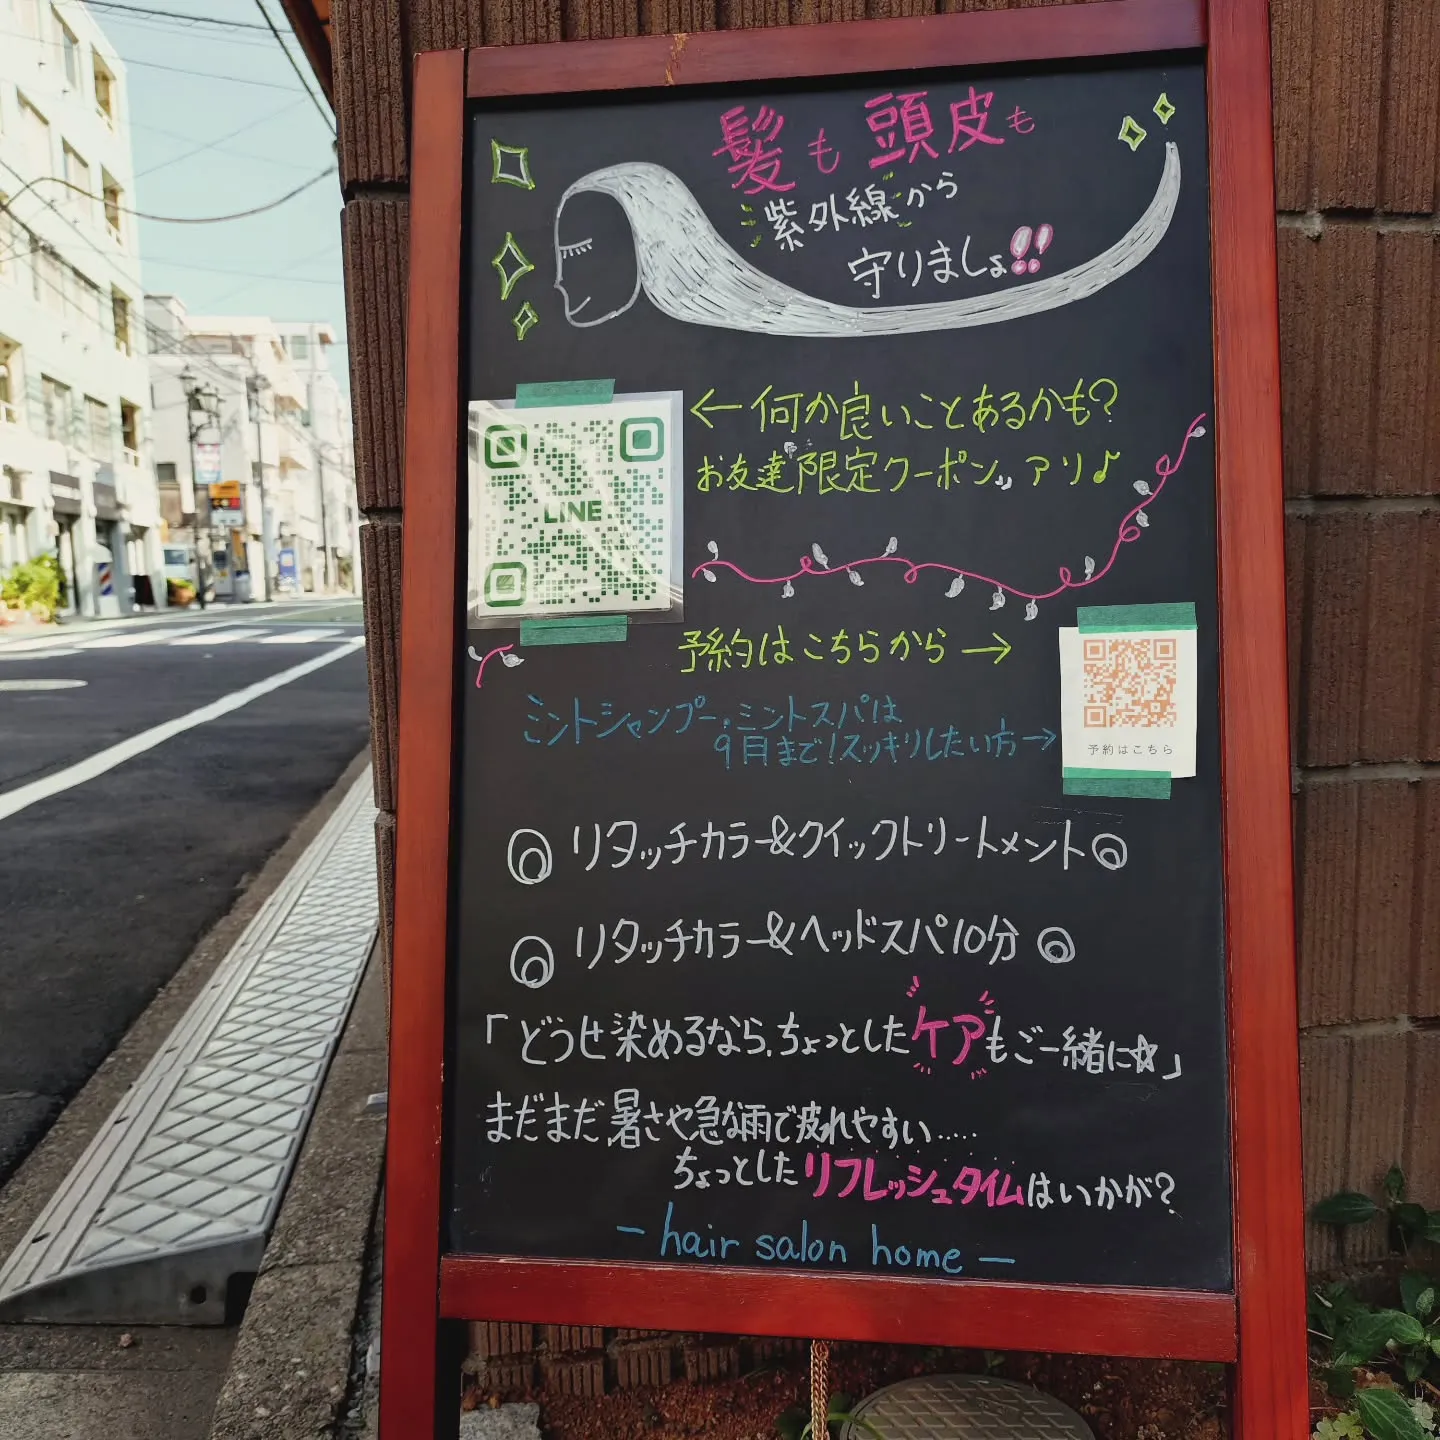 髪も頭皮も
紫外線から
守りましょ!!
←何か良いことあるかも?
お友達限定クーポン、アリ♪
LINE
予約はこちらから→
ミントシャンプー、ミントスパは
9月まで!スッキリしたい方→
予約はこちら
リタッチカラー&クイックトリートメント
リタッチカラー&ヘッドスパ10分
「どうせ染めるなら、ちょっとしたケアもご一緒に☆」
まだまだ暑さや急な雨で疲れやすい.....
ちょっとしたリフレッシュタイムはいかが?
- hair salon home -